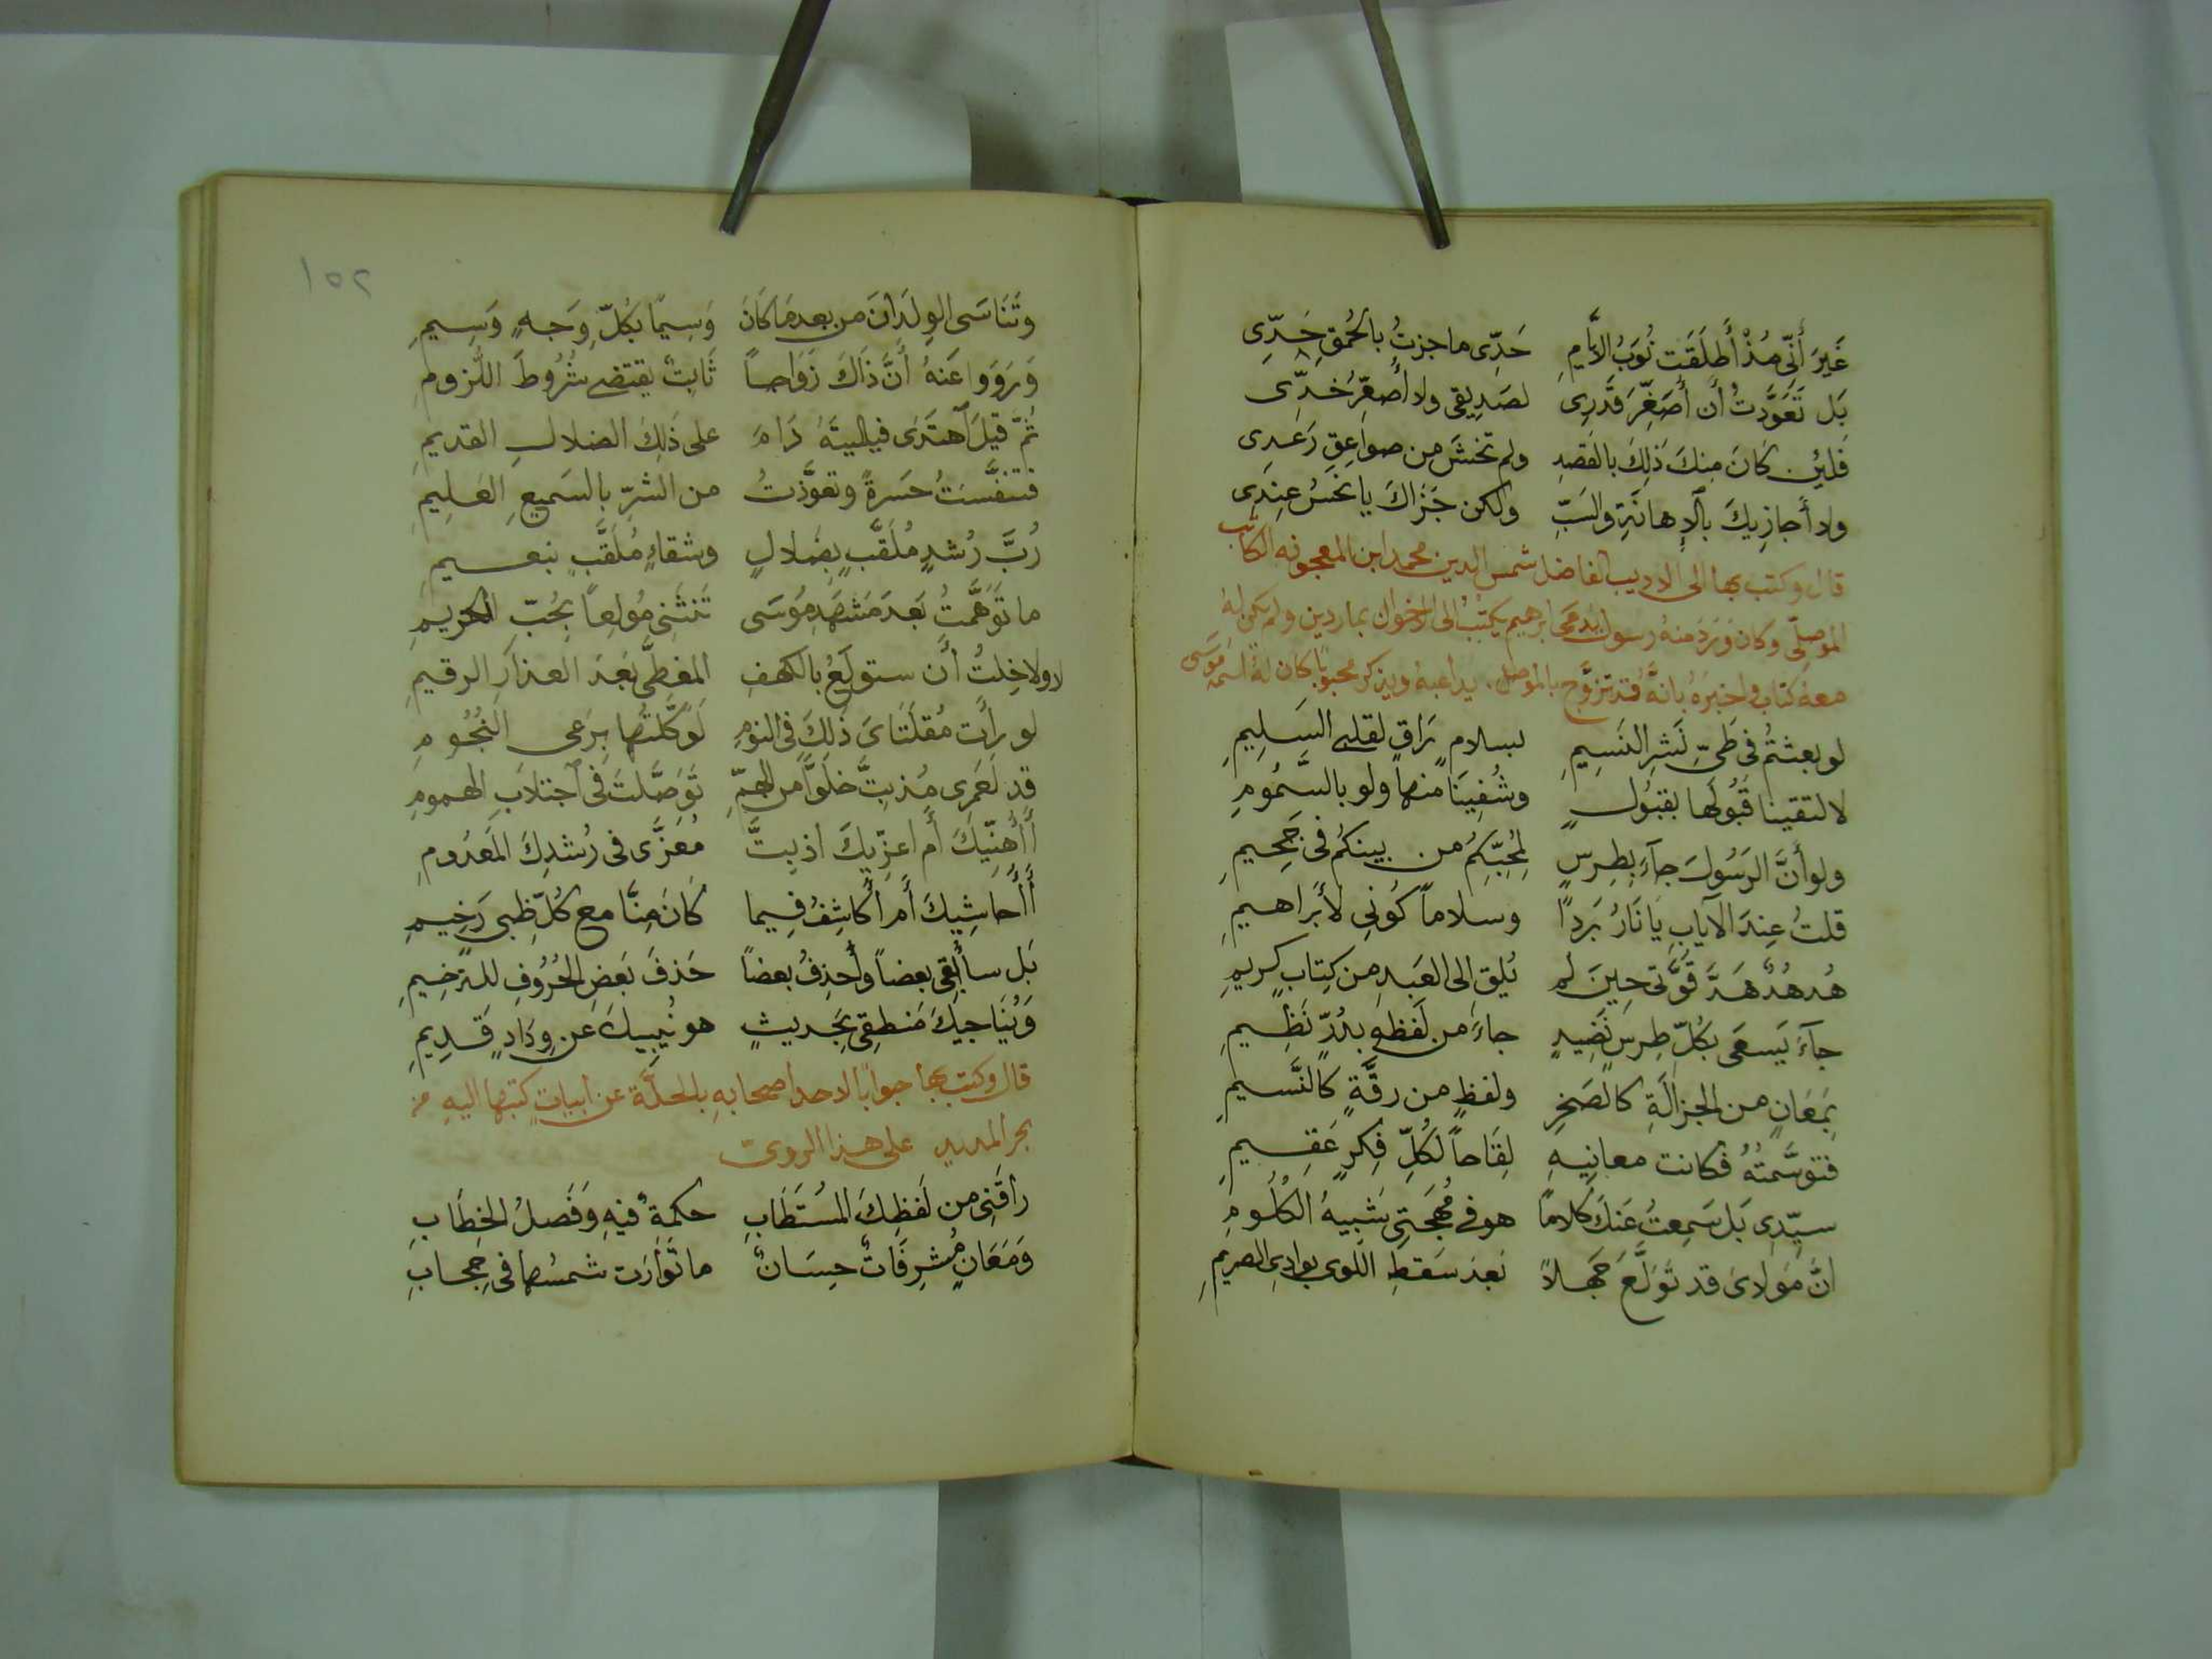 غَيرَ أَنّي مُذْ أَطلَقَت نُوَبُ الأَيَّامِ حَدّى ما جزتُ بالحُمقِ حَدِّى
بَل تَعَوَّدتُ أَن أُصَغِّرَ قَدرِى لصَدِيقى ولا أُصعِّرُ خَدِّى
فَلَئِن كانَ مِنكَ ذَلِكَ بالقَصدِ ولم تخشَ مِن صواعِقِ رَعدِى
ولا أُجازِيكَ بالإِهانَةِ والسَبِّ ولكن جَزَاكَ يا نحسُ عِندِى
قال وكتب بها الى الاديب الفاضل شمس الدين محمد ابن المعجونه الكاتب
الموصلّى وكان وَرَدَ منهُ رسول يُدعَى ابرهيم يكتبُ الى الاخوان بماردين ولم يكن لهُ
معهُ كتاب واخبرَهُ بانهُ قد تزوَّج بالموصل. يداعبهُ ويذكر محبوبًا كان لهُ اسمهُ مُوسَى
لو بعثتُم فى طَىِّ نَشرِ النَسِيمِ لسلامٍ رَاقٍ لقلبى السَلِيمِ
لالتقينا قَبُولَها بقبُولٍ وشُفِينَا منها ولو بالسَّمُومِ
ولو أَنَّ الرَسُولَ جآءَ بِطِرسٍ لمُحِبّكُم من بينكُم فى جَحِيمِ
قلتُ عِندَ الآيابِ يَا نَارُ بَردًا وسلاماً كُونِى لأبراهيمِ
هُدهُدٌ هَدَّ قُوَّتى حِينَ لم يُلقِ الى العَبدِ من كِتابٍ كريمِ
جآءَ يَسعَى بكُلِّ طِرسٍ نَضِيدٍ جاءَ من لَفظهِ بدُرٍّ نَظِيمِ
بمَعَانٍ من الجزالَةِ كالصَخرِ ولفظٍ من رقَّةٍ كالنَّسيمِ
فتوسَّمتُهُ فكانت معانِيهِ لِقَاحاً لكُلِّ فِكرٍ عَقِيمِ
سيّدِى بَل سَمِعتُ عَنكَ كلامًا هو فى مُهجَتِى شَبِيهُ الكُلُومِ
انَّ مَولاىَ قد تَوَلَّعَ جَهلاً بَعدَ سَقطِ اللوى بوادِى الصريمِ
١٥٢
وتَنَاسَى الوِلدَانَ من بعد مَا كَانَ وَسِيمًا بكُلِّ وَجهٍ وَسِيمِ
وَرَوَوا عَنهُ أَنَّ ذَاكَ زَوَاجاً ثَابِتٌ يقتضى شُرُوطَ اللُزومِ
ثُمَّ قيلَ اهتَدَى فيا ليتَهُ دَامَ على ذَلِكَ الضلالِ القديمِ
فتنفَّستُ حَسرةً وتعوَّذتُ من الشَرِّ بالسَميعِ العَلِيمِ
رُبَّ رُشدٍ مُلَقَّبٍ بضَلالٍ وشقاءٍ مُلَقَّبٍ بنعيمِ
ما تَوَهَّمتُ بَعدَ مَشهَدِ مُوسَى تَنثَنِى مُولعاً بحُبِّ الحريمِ
لا ولا خِلتُ أَن ستولَعُ بالكهفِ المغطَّى بَعدَ العذارِ الرقيمِ
لو رَأَت مُقلَتَاىَ ذَلِكَ فى النومِ لَوَكَّلتُها بِرَعى النُجُومِ
قد لَعَمرِى مُذ بِتَّ خلواً من الهمِّ تَوَصَّلتَ فى اجتلابِ الهمومِ
أَأُهَنّيكَ أَم اعزّيكَ اذ بِتَّ مُعَزَّى فى رُشدِكَ المَعدُومِ
أَأُحاشِيكَ أَم أُكاشِفُ فِيما كَانَ مِنَّا مع كُلِّ ظبى رَخِيمِ
بَل سأُبقِى بعضاً وأَحذِفُ بعضاً حَذفَ بَعضِ الحُرُوفِ للترخِيمِ
وَيُنَاجيكَ مَنطِقِى بحَديثٍ هو يُنبِيكَ عَن وِدَادٍ قَدِيمِ
قال وكتب بها جوابًا لاحد اصحابهِ بالحلَّة عن ابياتٍ كتبها اليهِ من
بحر المديد على هذا الروىّ
راقَنِى من لَفظِكَ المُستَطَابِ حكمةٌ فيهِ وَفَصلُ الخِطَابِ
وَمَعَانٍ مُشرِقَاتٌ حِسَانٌ ما تَوَارَت شمسُها فى حِجابِ